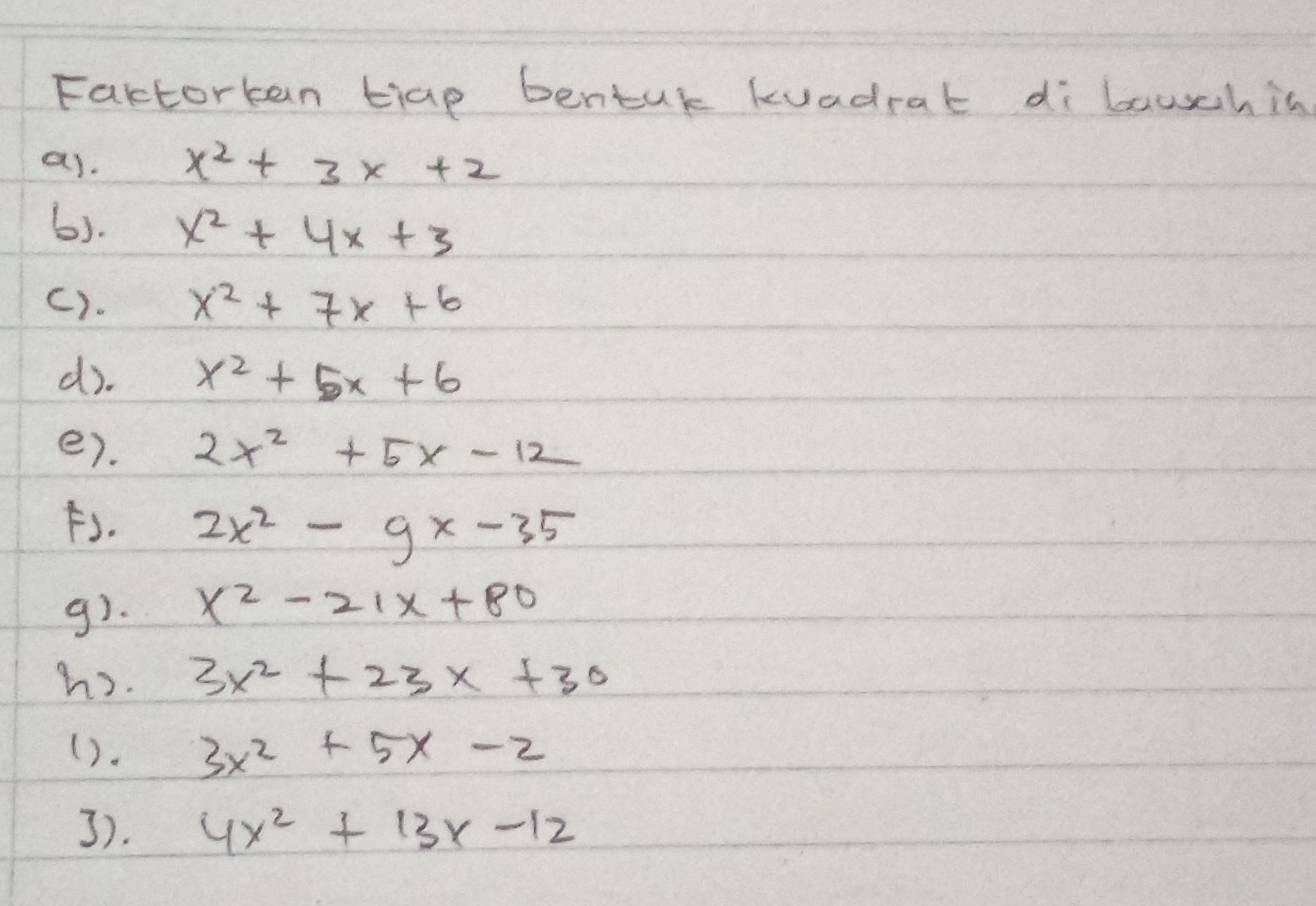 Faktorkan tiap bentuk kuadrat di bawah in
a). x² + 3x + 2
b). x² + 4x + 3
c). x² + 7x + 6
d). x² + 5x + 6
e). 2x² + 5x - 12
F). 2x² - 9x - 35
g). x² - 21x + 80
h). 3x² + 23x + 30
i). 3x² + 5x - 2
J). 4x² + 13x - 12